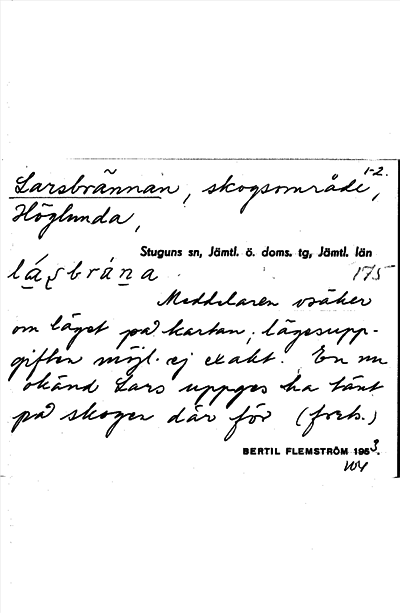 1-2.
Larsbrännan, skogsområde,
Höglunda,
Stuguns sn, Jämtl. ö. doms. tg, Jämtl. län
lá̱ʂbrán̠a 175
Meddelaren osäker
om läget på kartan; lägesupp-
giften möjl. ej exakt. En nu
okänd Lars uppges ha tänt
på skogen där för (forts.)
BERTIL FLEMSTRÖM 1953.